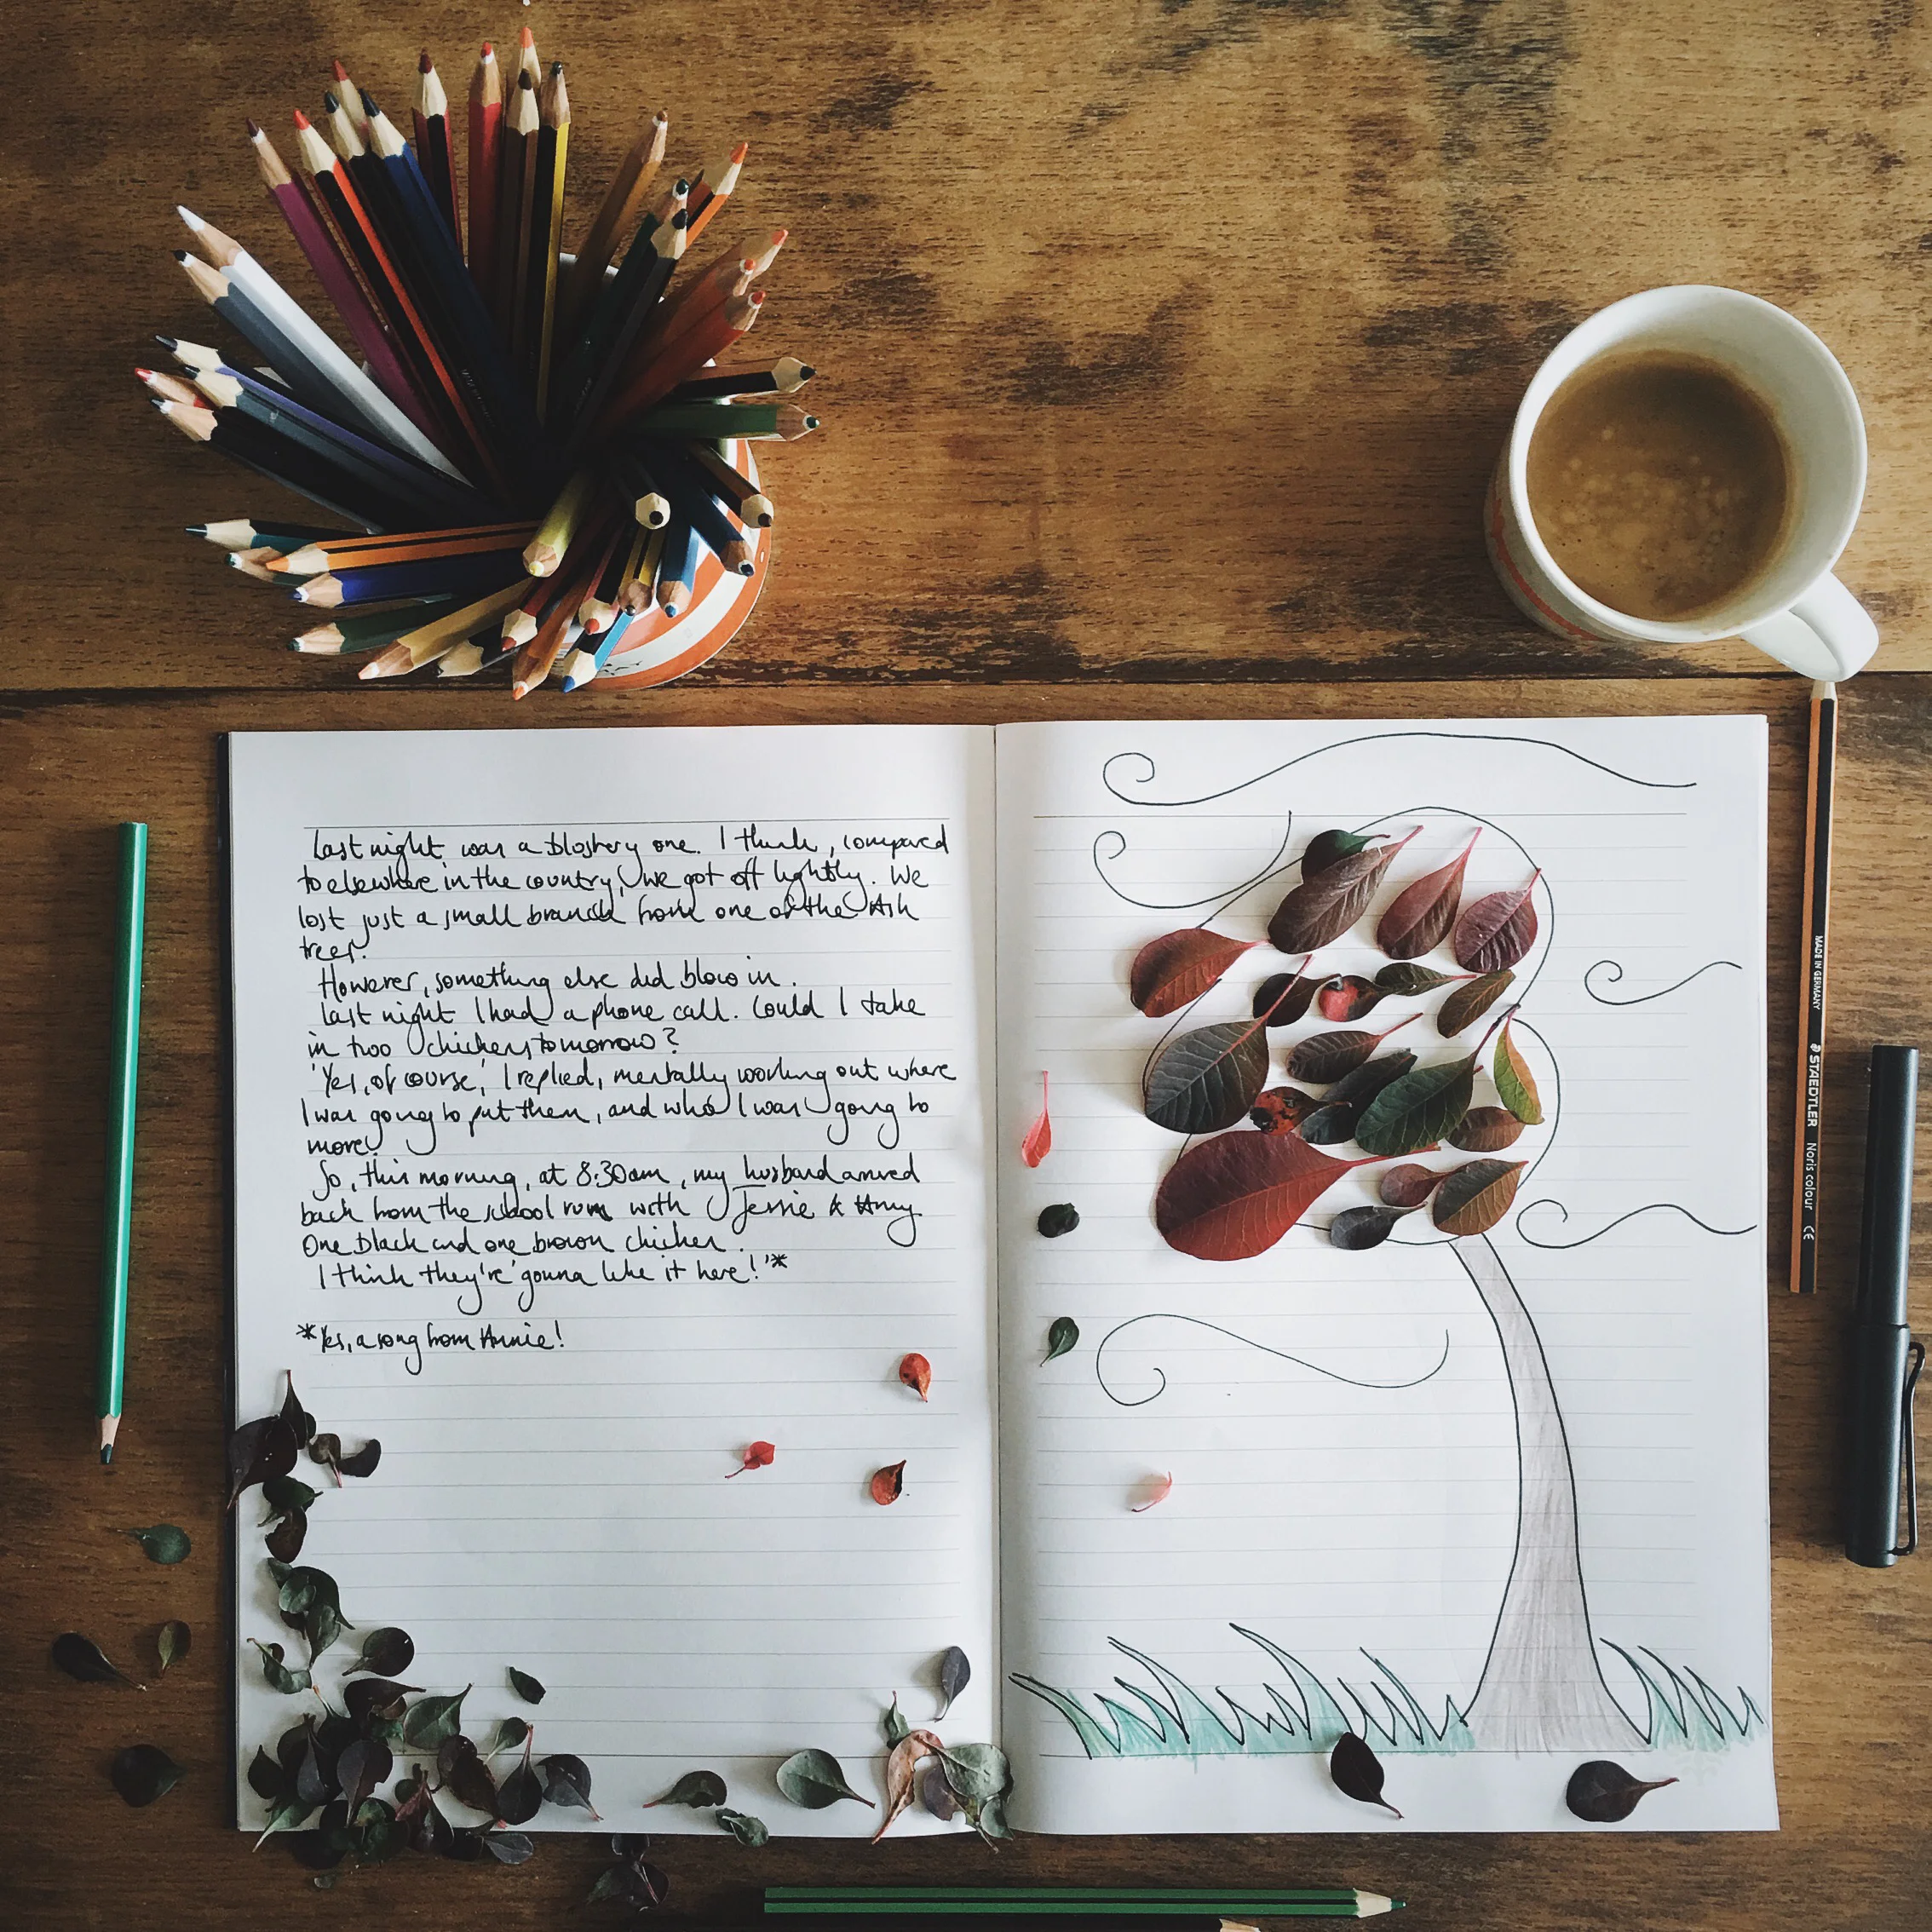 Last night was a blustery one. I think, compared
to elsewhere in the country, we got off lightly. We
lost just a small branch from one of the Ash
trees.
However, something else did blow in.
Last night I had a phone call. Could I take
in two chickens tomorrow?
'Yes, of course,' I replied, mentally working out where
I was going to put them, and who I was going to
move!
So, this morning, at 8:30am, my husband arrived
back from the school run with Jessie & Amy.
One black and one brown chicken.
I think they're 'gonna like it here!'*
*Yes, a song from Annie!
MADE IN GERMANY STAEDTLER Noris colour CE